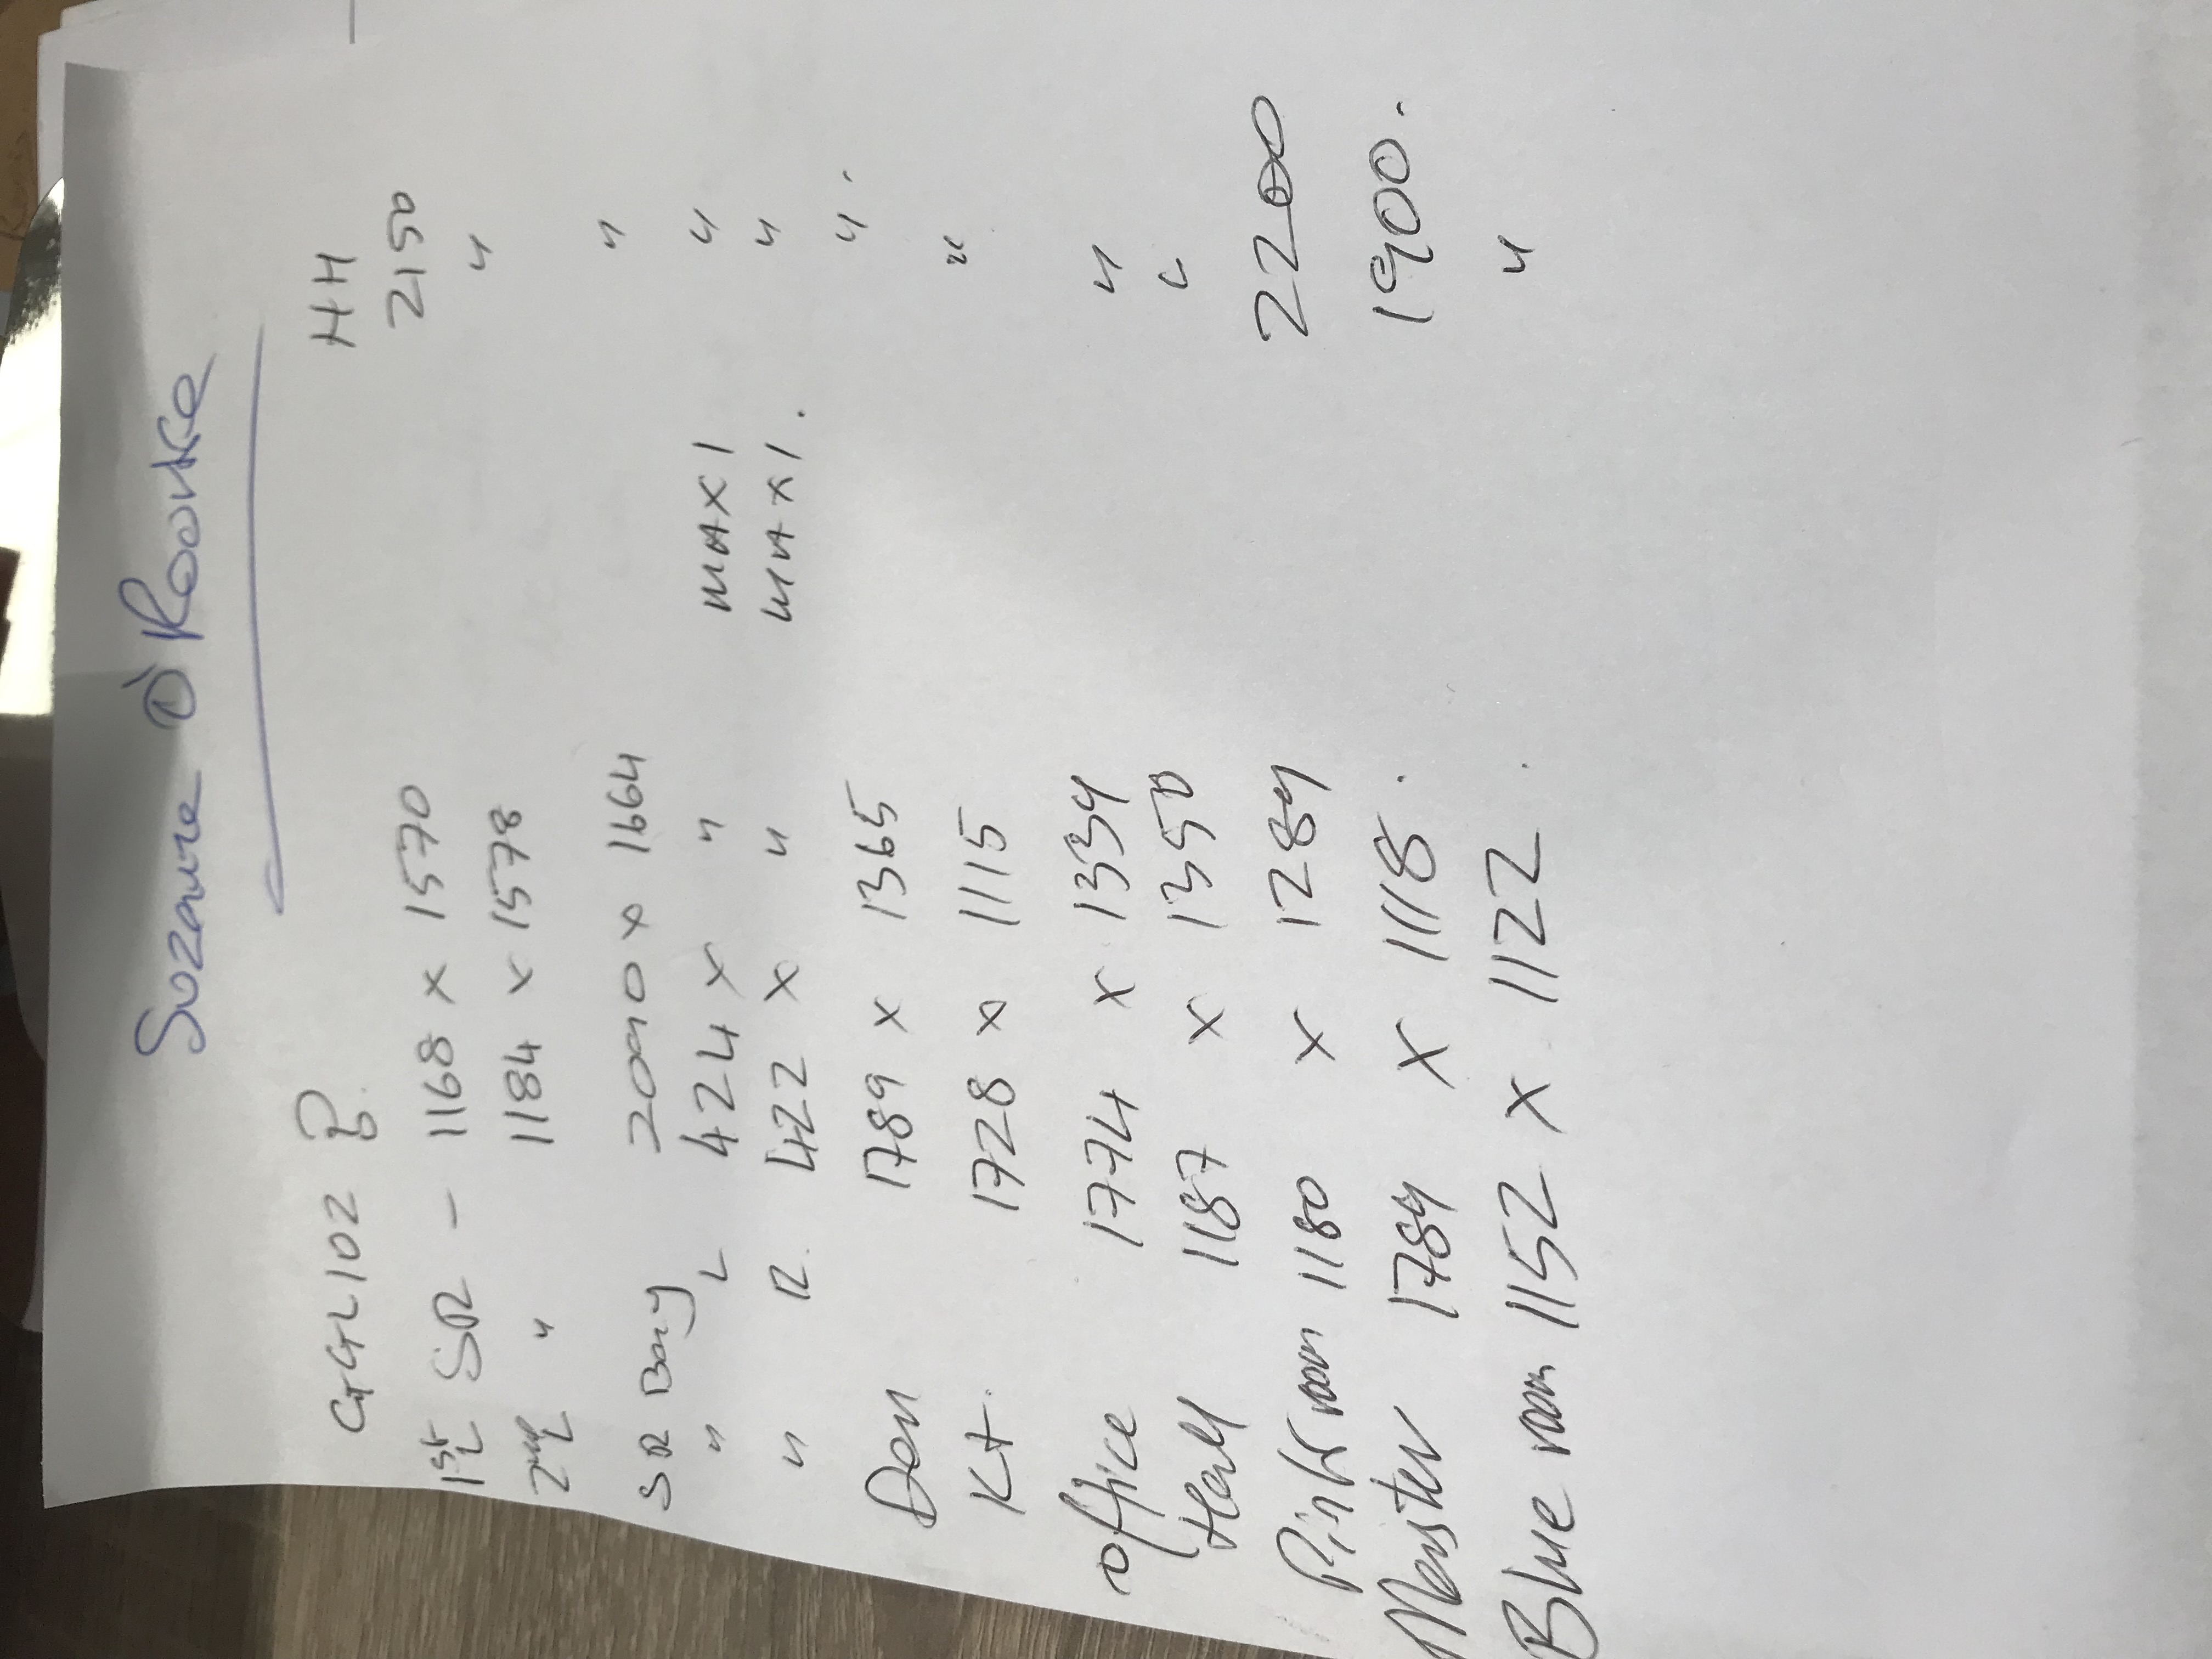 Suzanne O'Rourke
HH
1st SR - 1168 x 1570 2150
2nd " 1184 x 1578 "
SR Bay 2000 x 1664 "
" L 424 x " MAXI "
" R. 422 x " MAXI. "
Den 1789 x 1365 ".
Kt. 1728 x 1115 "
office 1774 x 1334 "
Hall 1187 x 1350 "
Pink room 1180 x 1284 2200
Master 1784 x 1118. 1900.
Blue room 1152 x 1122. "